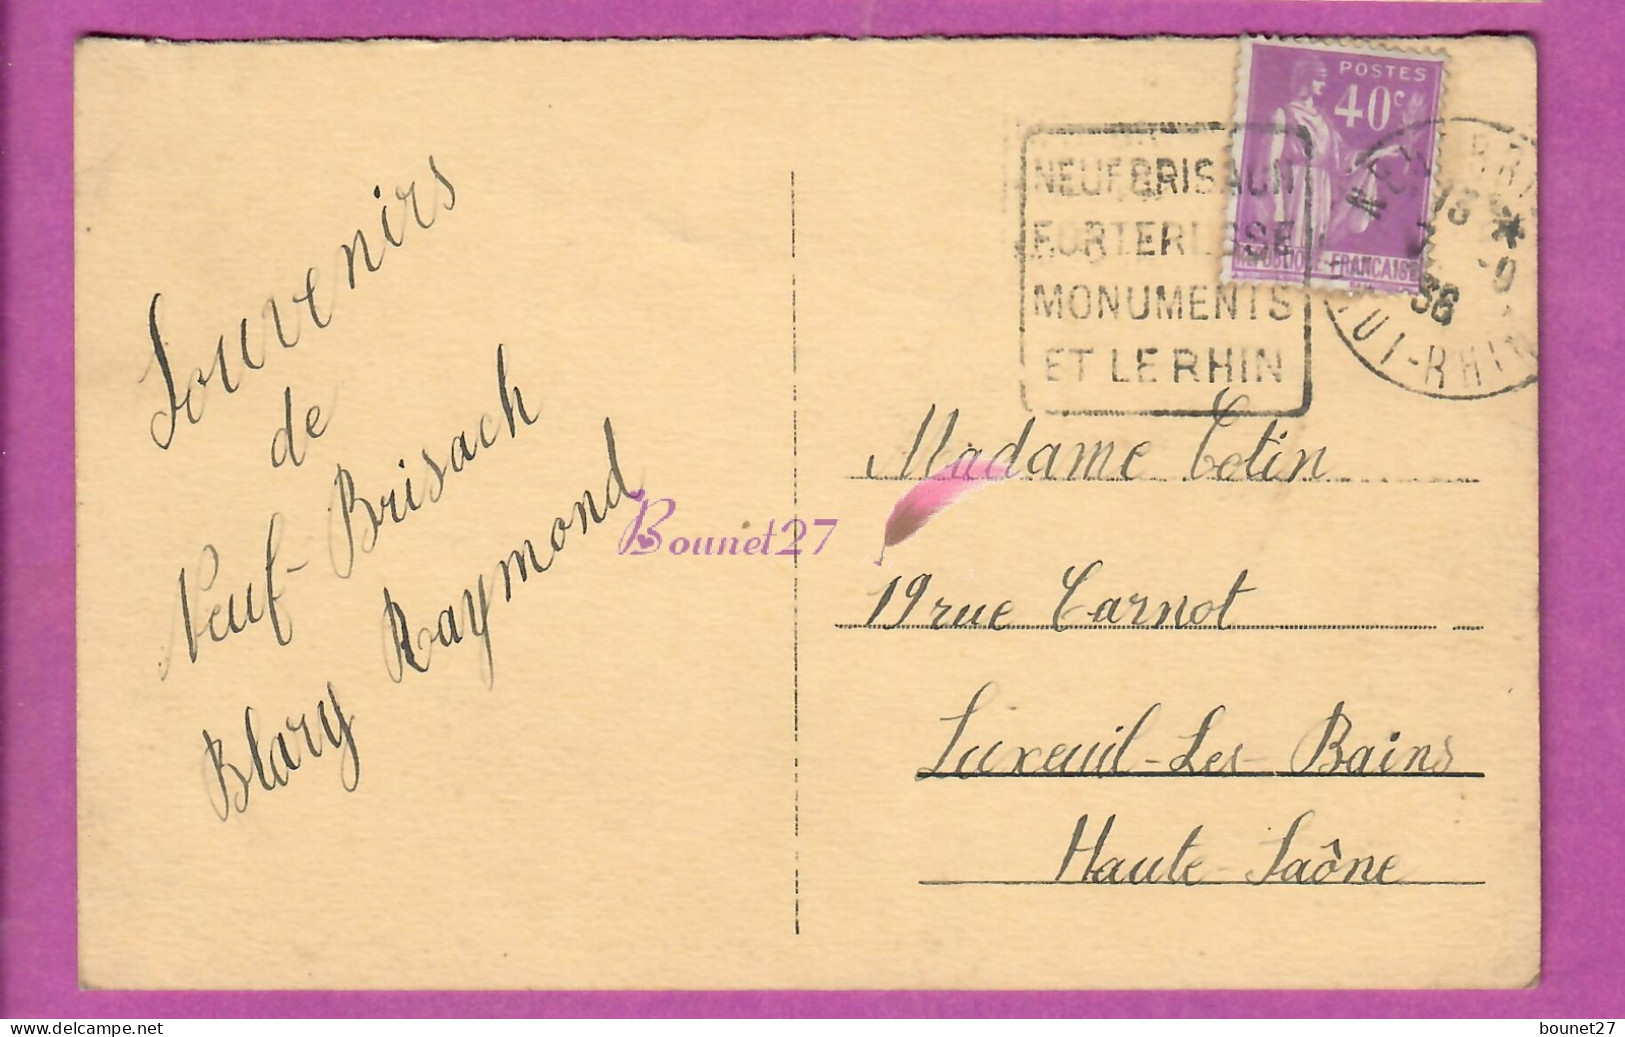 Souvenirs
de
Neuf-Brisach
Blary Raymond
NEUF BRISACH
FORTERESSE
MONUMENTS
ET LE RHIN
POSTES
40c
REPUBLIQUE-FRANCAISE
36
Madame Cotin
19 rue Carnot
Luxeuil-Les-Bains
Haute-Saône
Bounet27
bounet27
www.delcampe.net